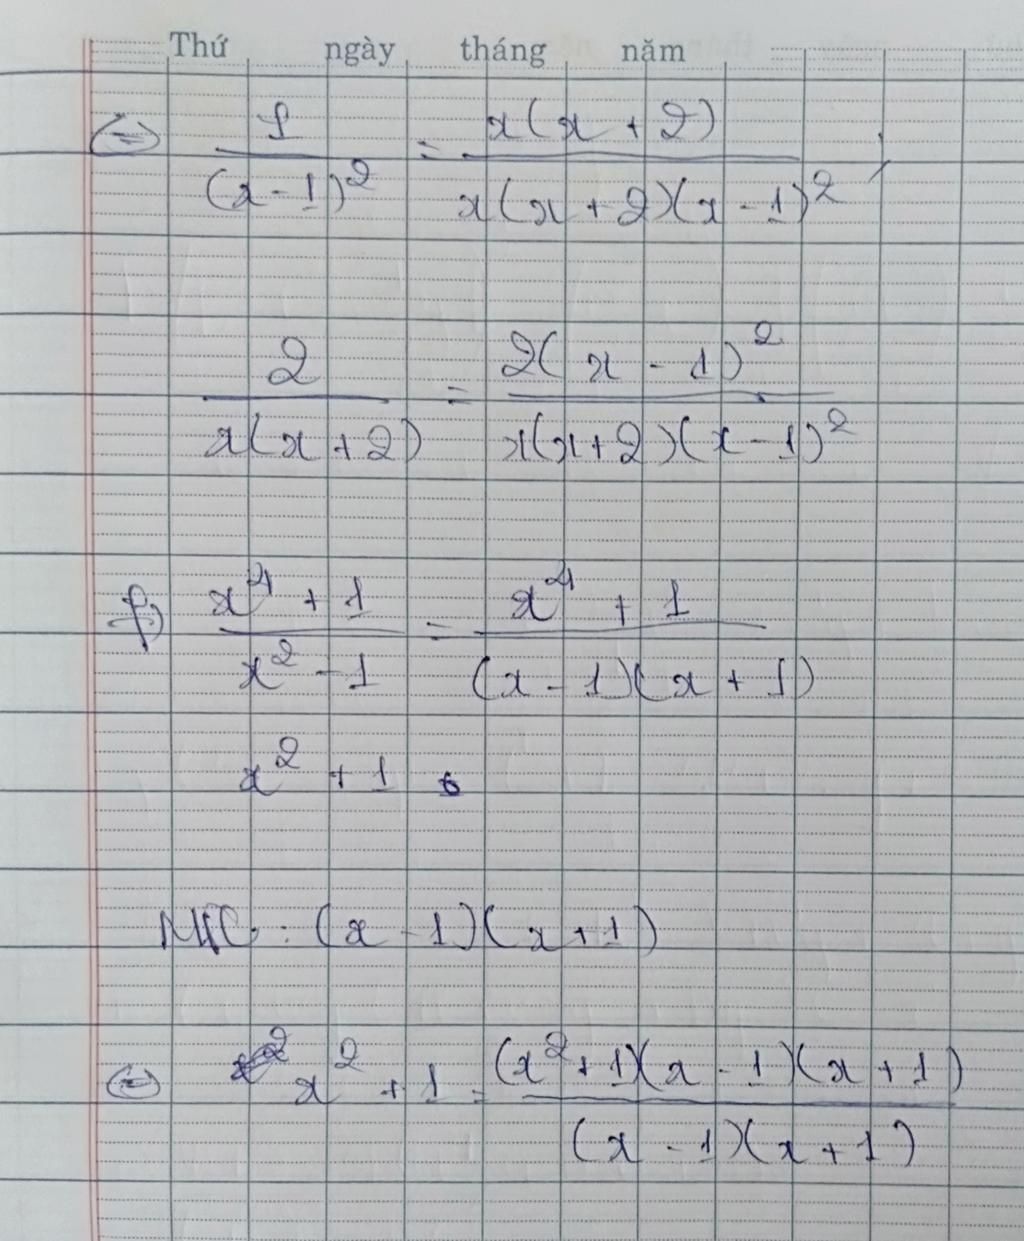 Thứ ngày tháng năm
(=) 1/(x-1)² = x(x+2)/x(x+2)(x-1)² ;
2/x(x+2) = 2(x-1)²/x(x+2)(x-1)²
f) x⁴+1/x²-1 = x⁴+1/(x-1)(x+1)
x²+1
MTC: (x-1)(x+1)
(=) x²+1 = (x²+1)(x-1)(x+1)/(x-1)(x+1)